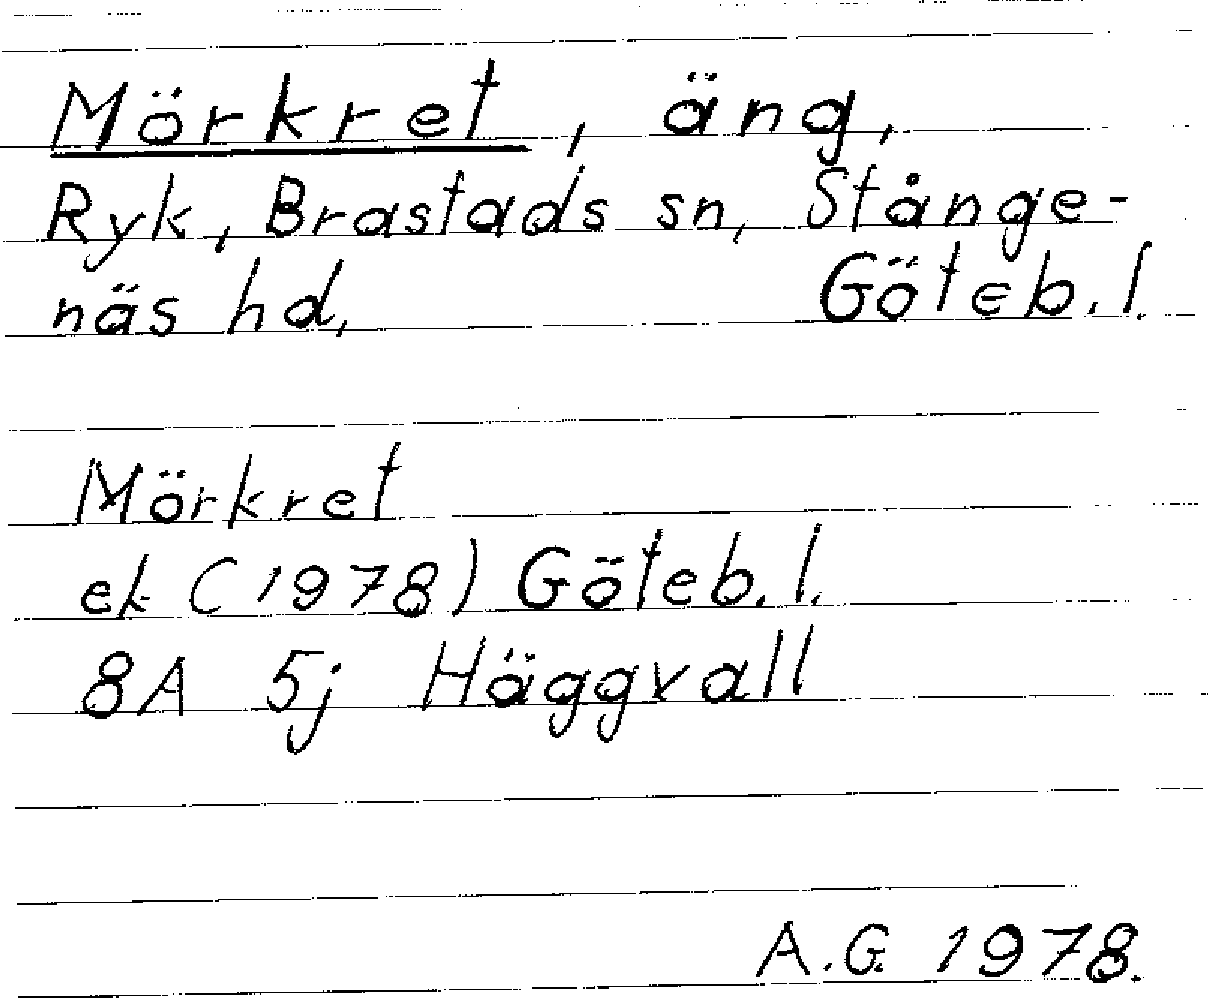 Mörkret, äng,
Ryk, Brastads sn, Stånge-
näs hd, Göteb. l.
Mörkret
ek (1978) Göteb. l.
8A 5j Häggvall
A.G. 1978.